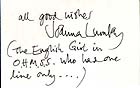 all good wishes
Joanna Lumley
(The English Girl in
O.H.M.S.S. who had one
line only ....)